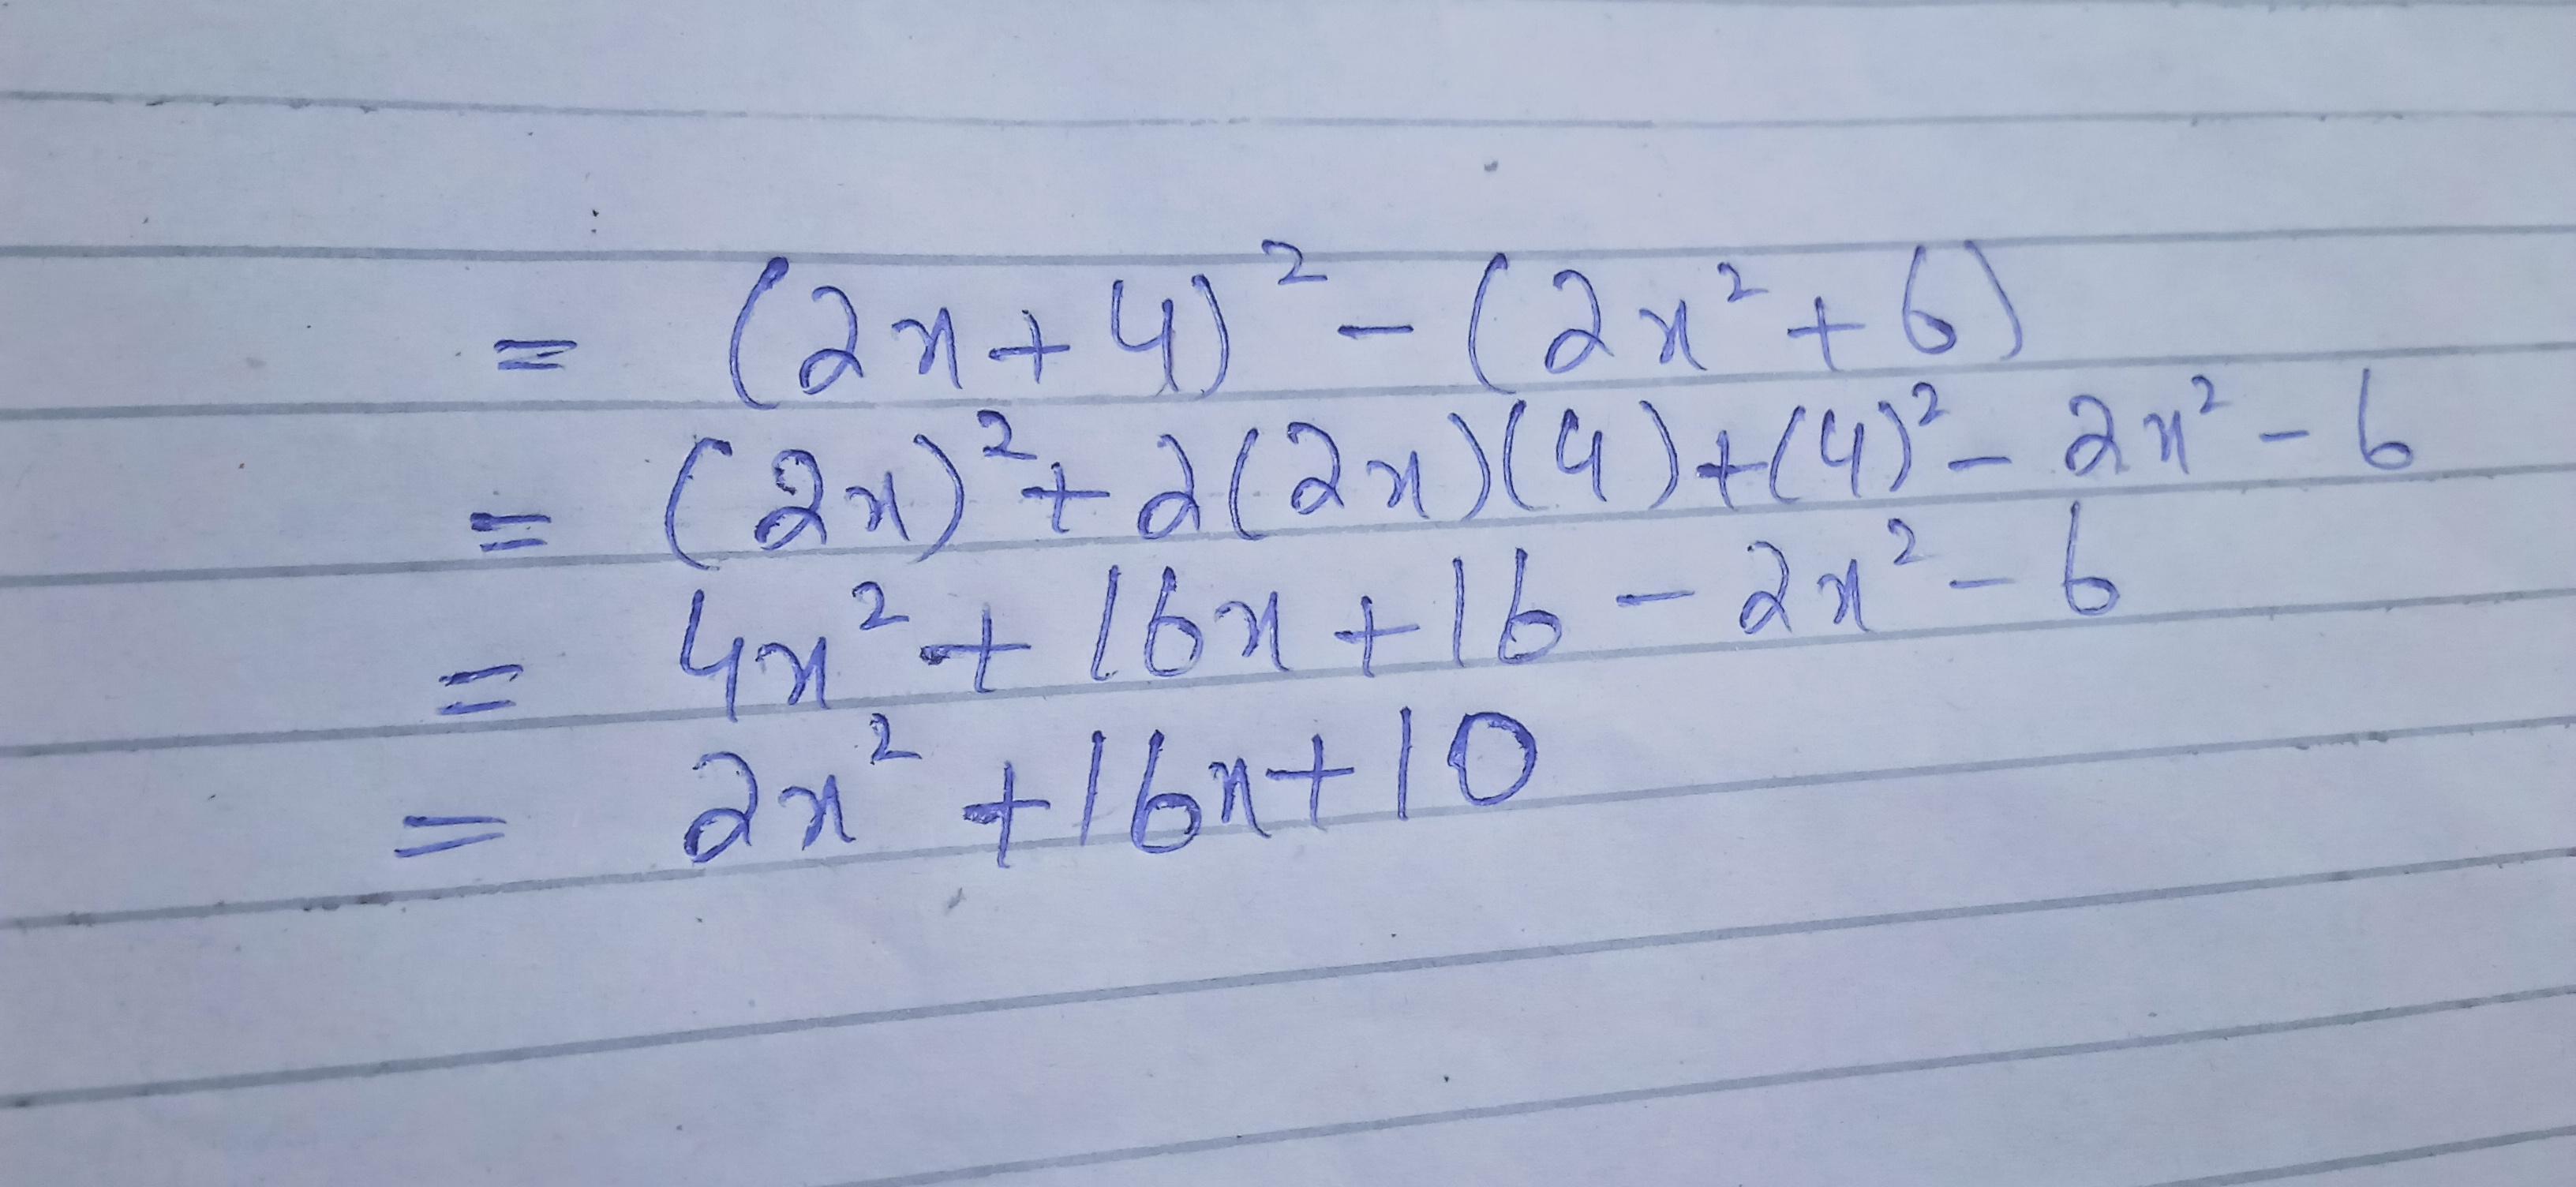 = (2x+4)² - (2x²+6)
= (2x)² + 2(2x)(4)+(4)² - 2x² - 6
= 4x² + 16x + 16 - 2x² - 6
= 2x² + 16x + 10